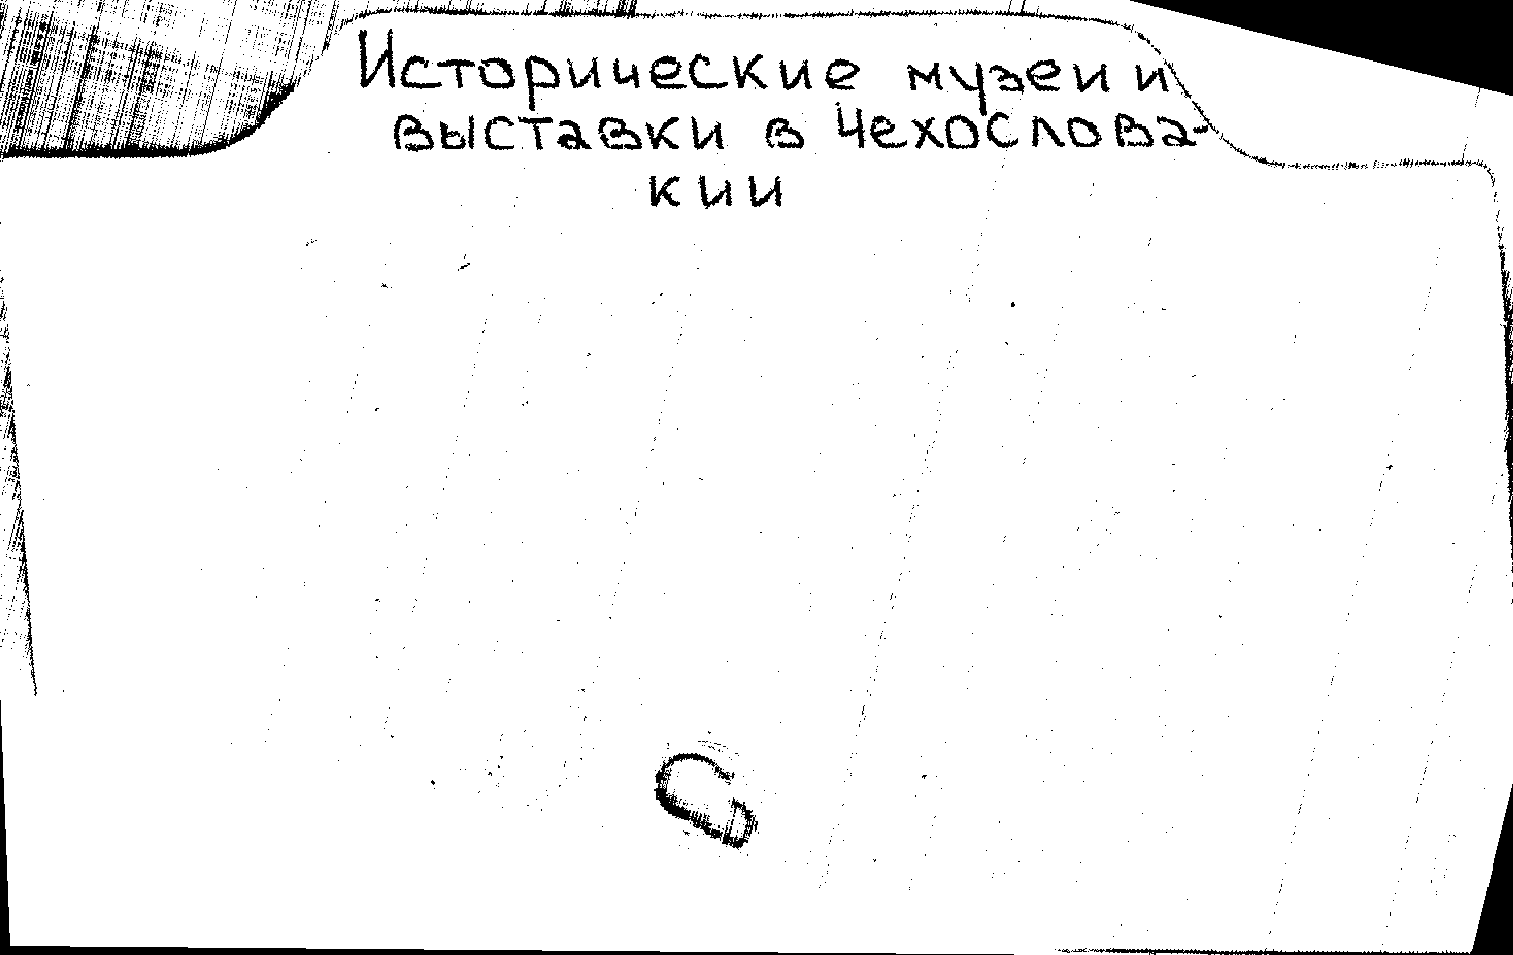 Исторические музеи и
выставки в Чехослова-
кии